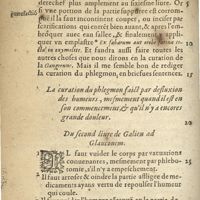 derechef plus amplement au sixiesme liure. Or
si vne portion de la partie suppuree est corrom-
puë il la faut incontinent couper, ou inciser par
scarifications qui entrēt bien auant, & apres l'en-
enduer auec eau sallee, & finalement appli-
quer vn emplastre
in oxymelite. Et faudra aussi faire toutes les
autres choses que nous dirons en la curation de
la Gangrene. Mais il me semble bon de rediger
la curation du phlegmon, en briefues sentences.
10
15
La curation du phlegmon faict par defluxion
des humeurs, mesmement quand il est en
son commencement, & qu'il n'y a encores
grande douleur.
Du second liure de Galien ad
Glauconem.
IL faut vuider le corps par vacuations
conuenantes, mesmement par phlebo-
tomie, s'il n'y a empeschement.
25
Il faut arrester & oindre la partie affligee de me-
dicaments ayans vertu de repoulser l'humeur
qui coule.